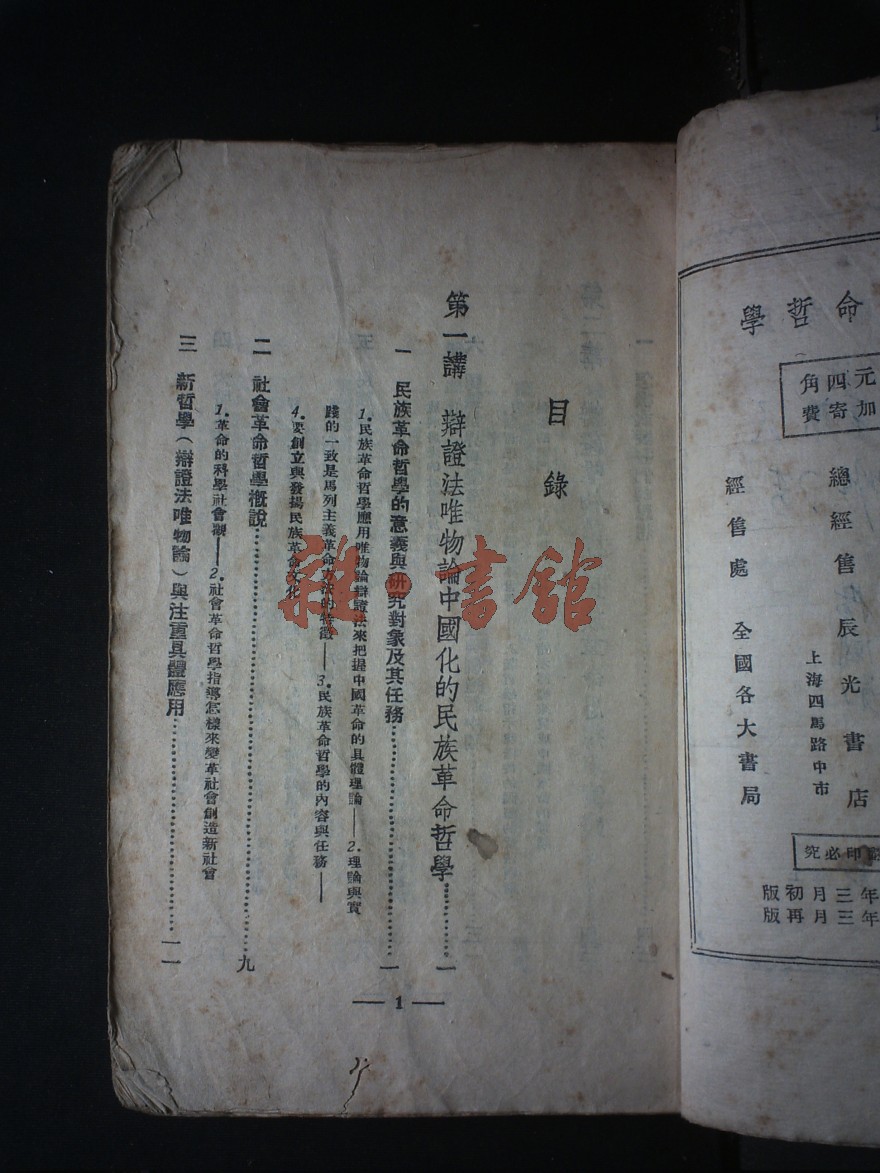 命哲學
元四角
加寄費
總經售 辰光書店
上海四馬路中市
經售處 全國各大書局
印必究
年三月初版
年三月再版
目錄
第一講 辯證法唯物論中國化的民族革命哲學……一
一 民族革命哲學的意義與研究對象及其任務……一
1.民族革命哲學應用唯物論辯證法來把握中國革命的具體理論——2.理論與實
踐的一致是馬列主義革命方法的特徵——3.民族革命哲學的內容與任務——
4.要創立與發揚民族革命文化
二 社會革命哲學概說……九
1.革命的科學社會觀——2.社會革命哲學指導怎樣來變革社會創造新社會
三 新哲學(辯證法唯物論)與注重具體應用……一一
— 1 —
雜·書館